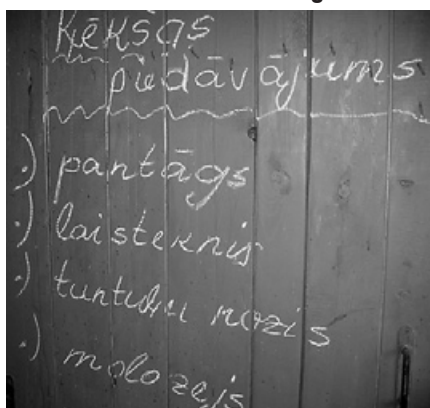 Ķēkšas
piedāvājums
.) pantāgs
.) laisteknis
.) nozis
.) molozejs